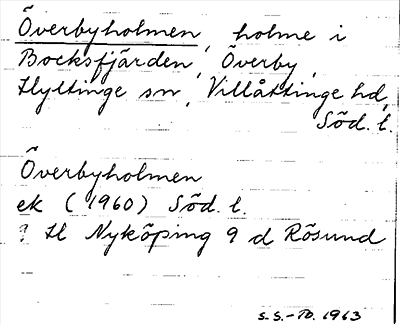 Överbyholmen, holme i
Bocksfjärden, Överby,
Hyltinge sn, Villåttinge hd,
Söd. l.
Överbyholmen
ek (1960) Söd. l.
? H Nyköping 9 d Rösund
S.S.-To. 1963